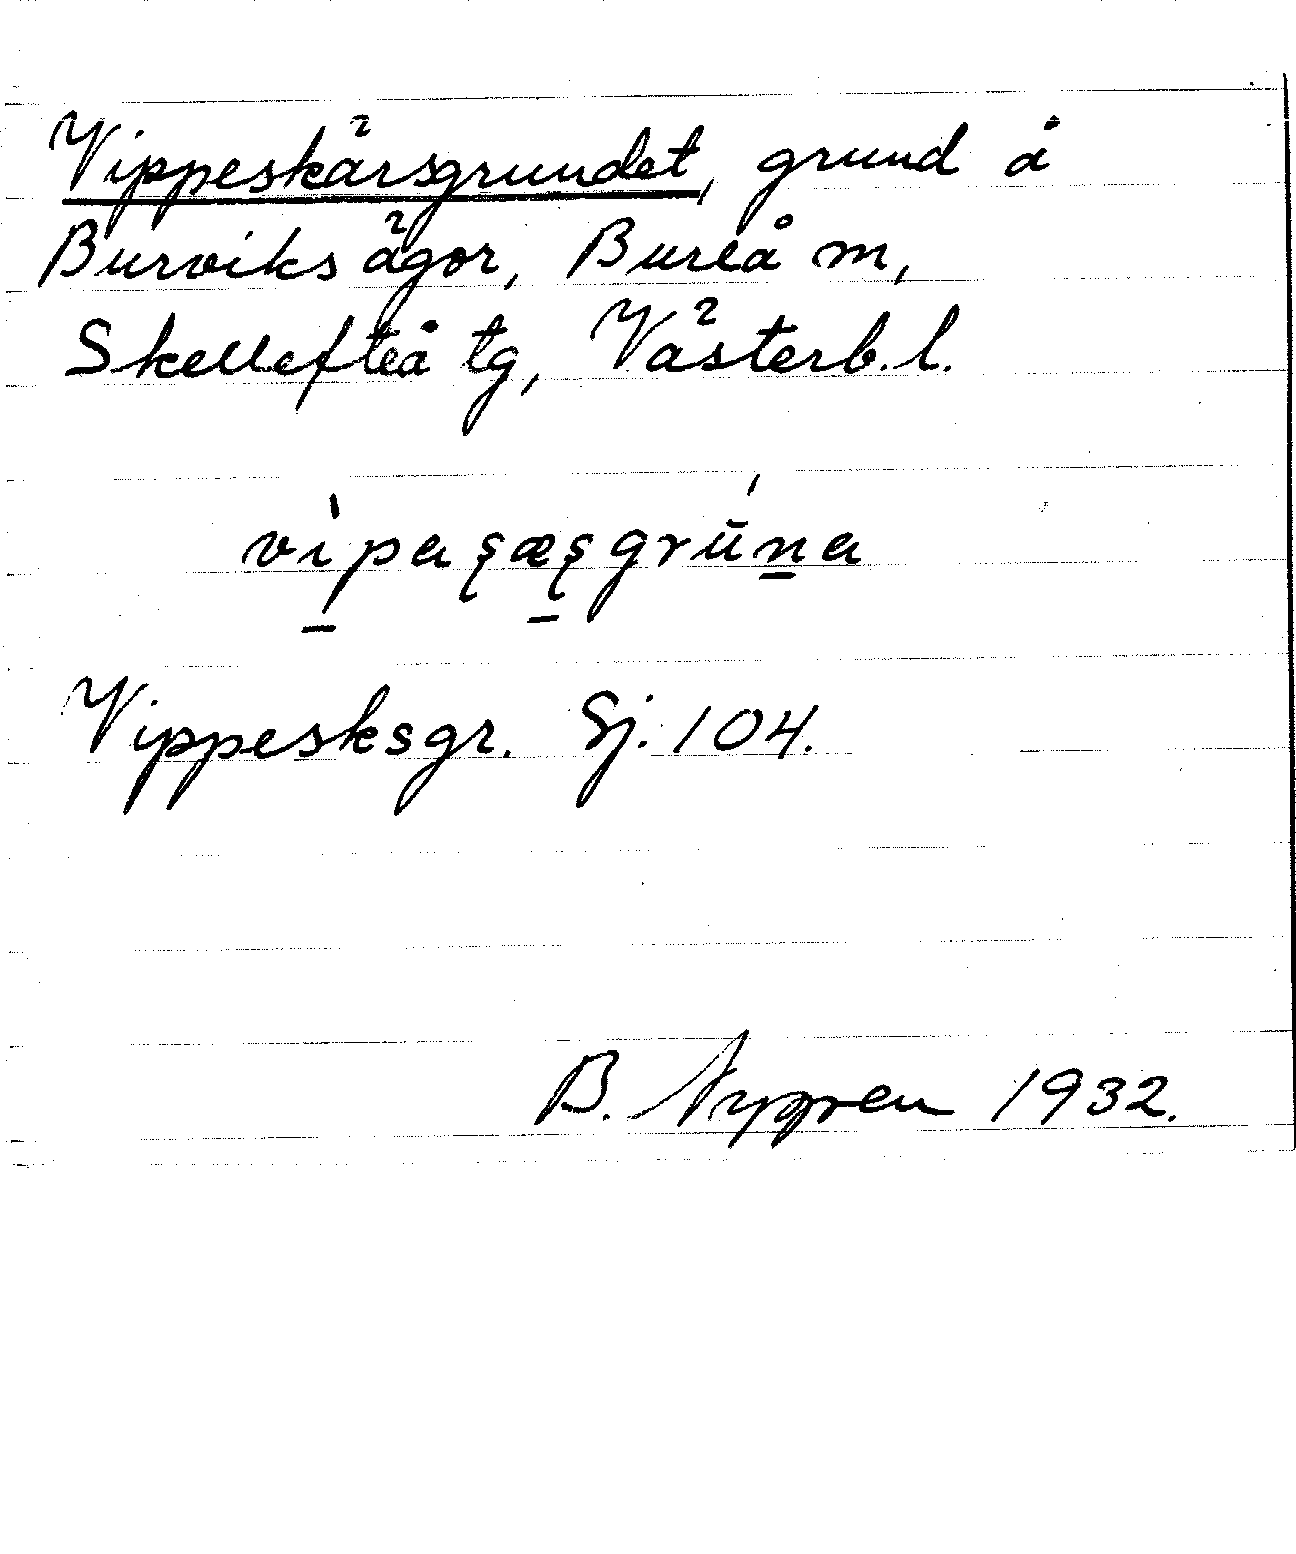 Vippeskärsgrundet, grund å
Burviks ägor, Bureå m,
Skellefteå tg, Västerb. l.
Vippesksgr. Sj. 104.
B. Nygren 1932.